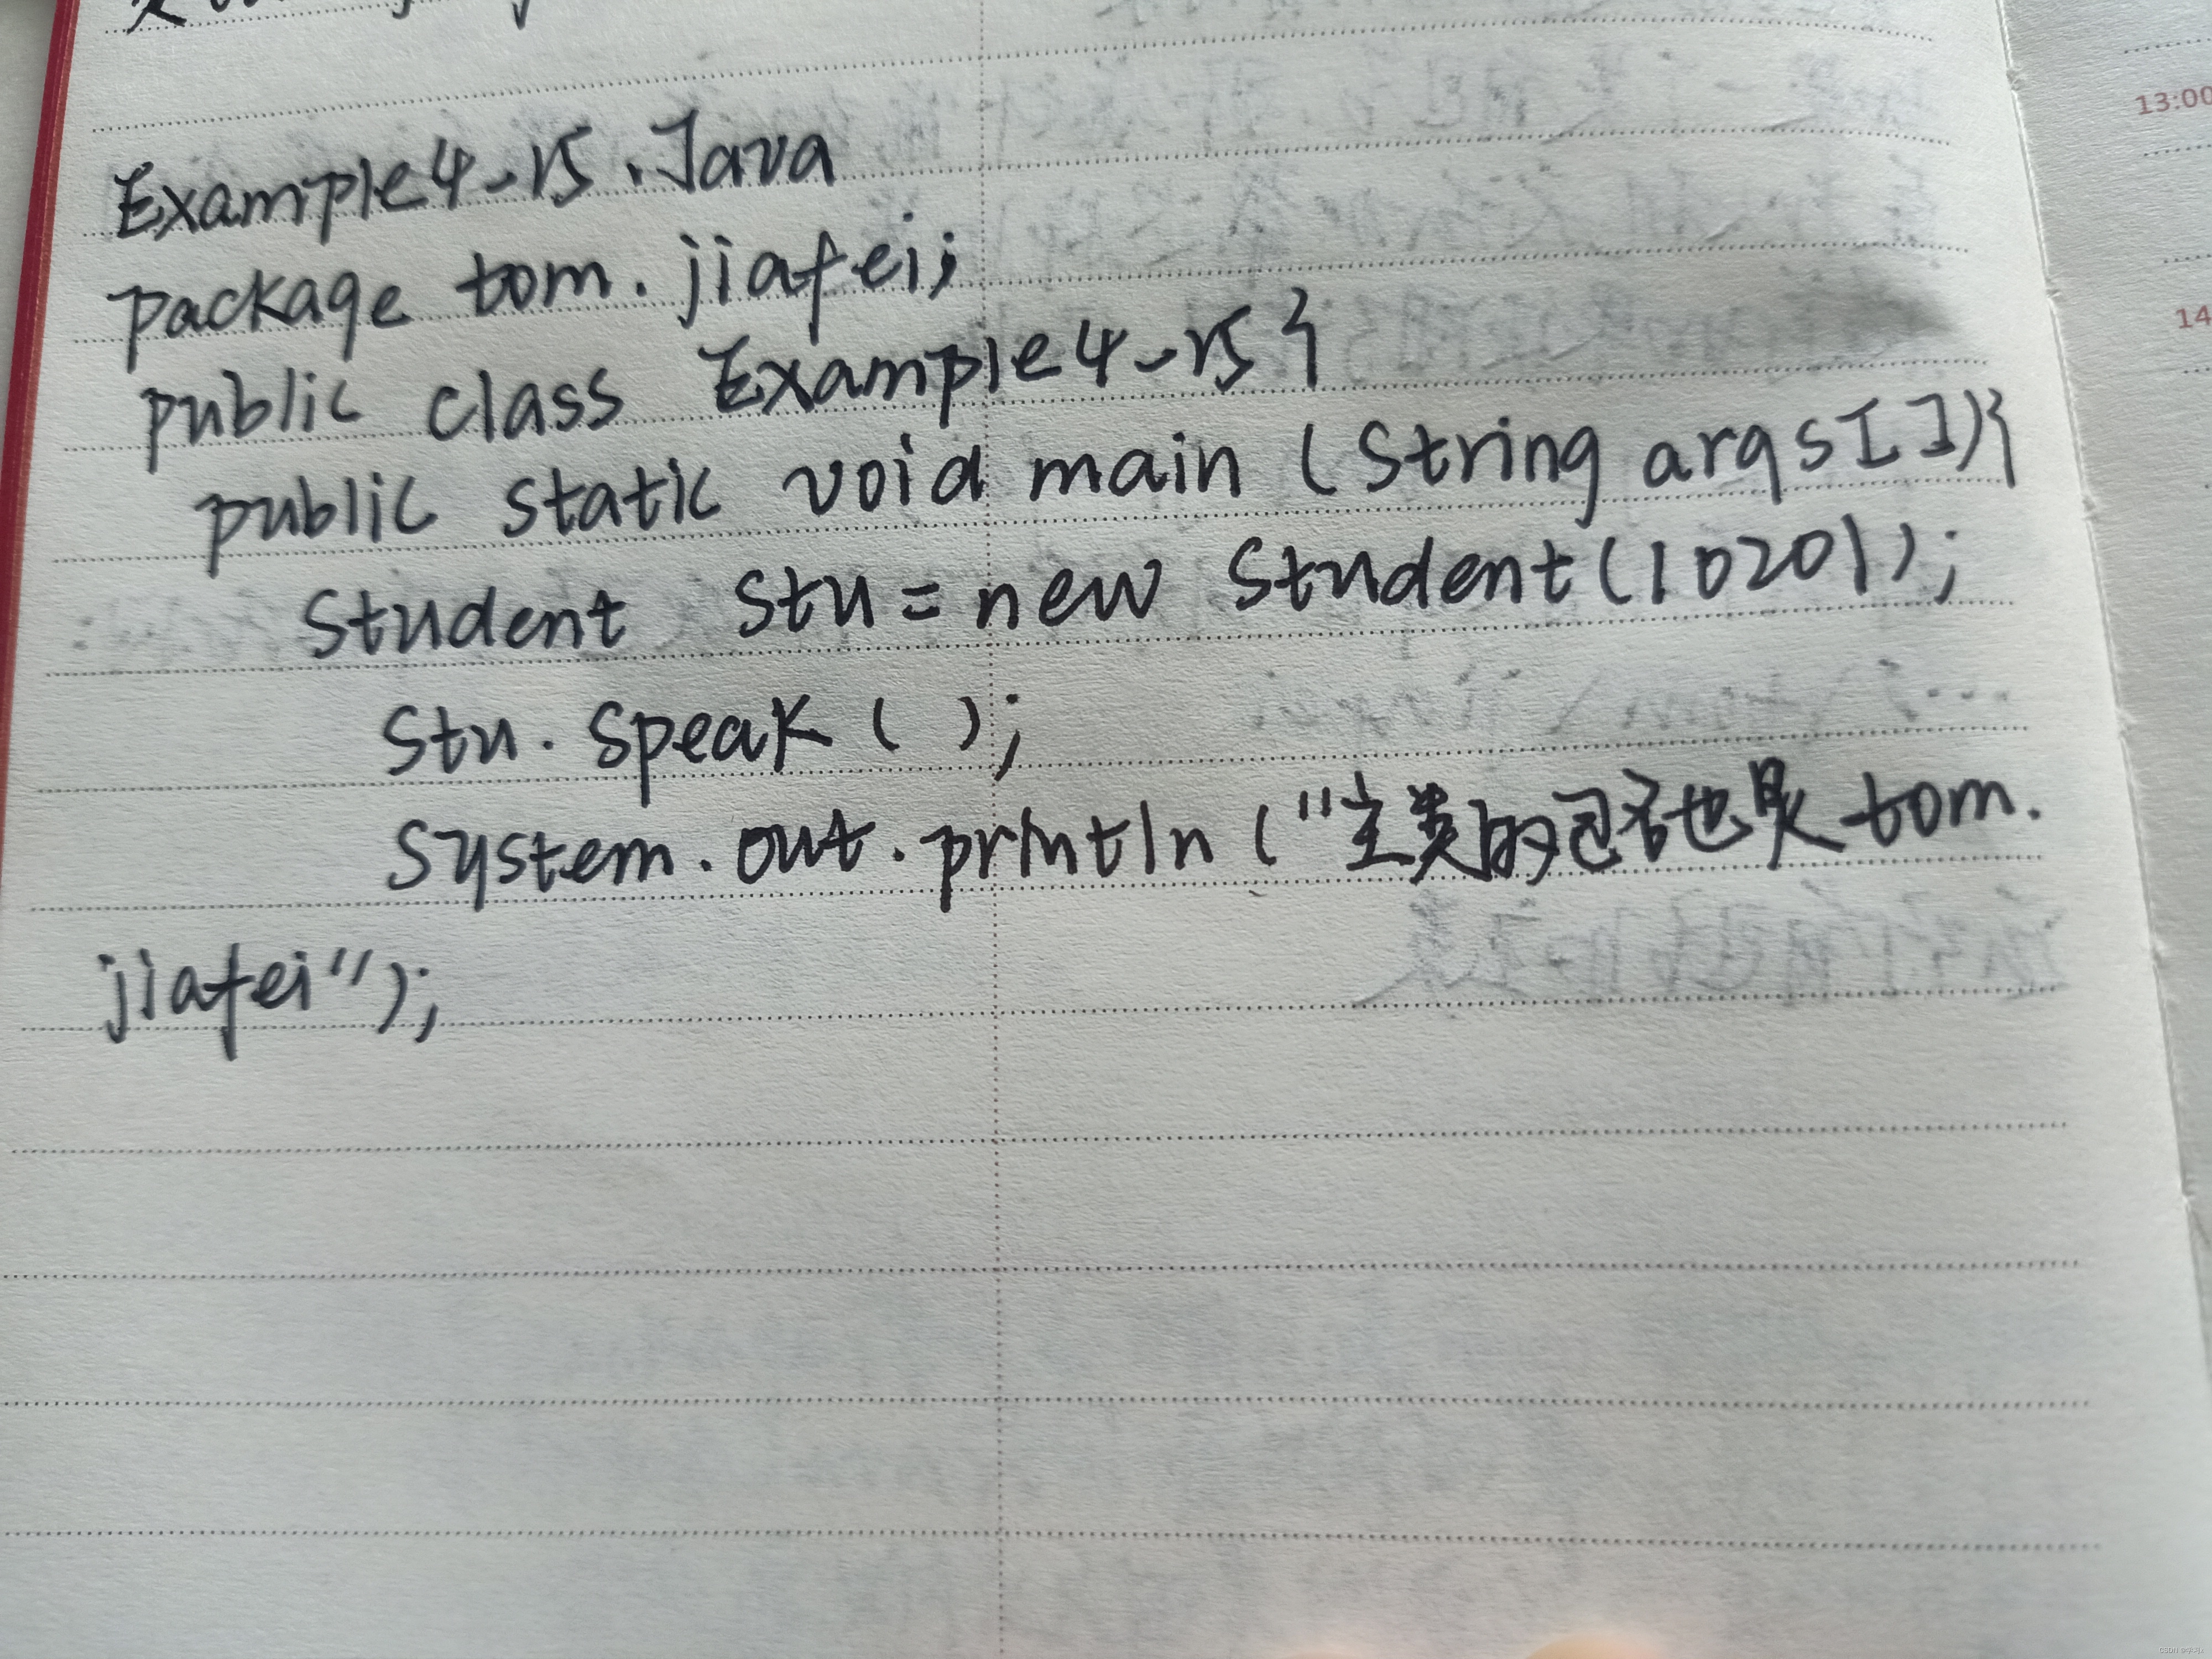 Example4-15.Java
package tom.jiafei;
public class Example4-15{
public static void main (String args[]){
Student stu=new Student(10201);
stu.speak();
System.out.println("主类的包名也是tom.
jiafei");
13:00
14